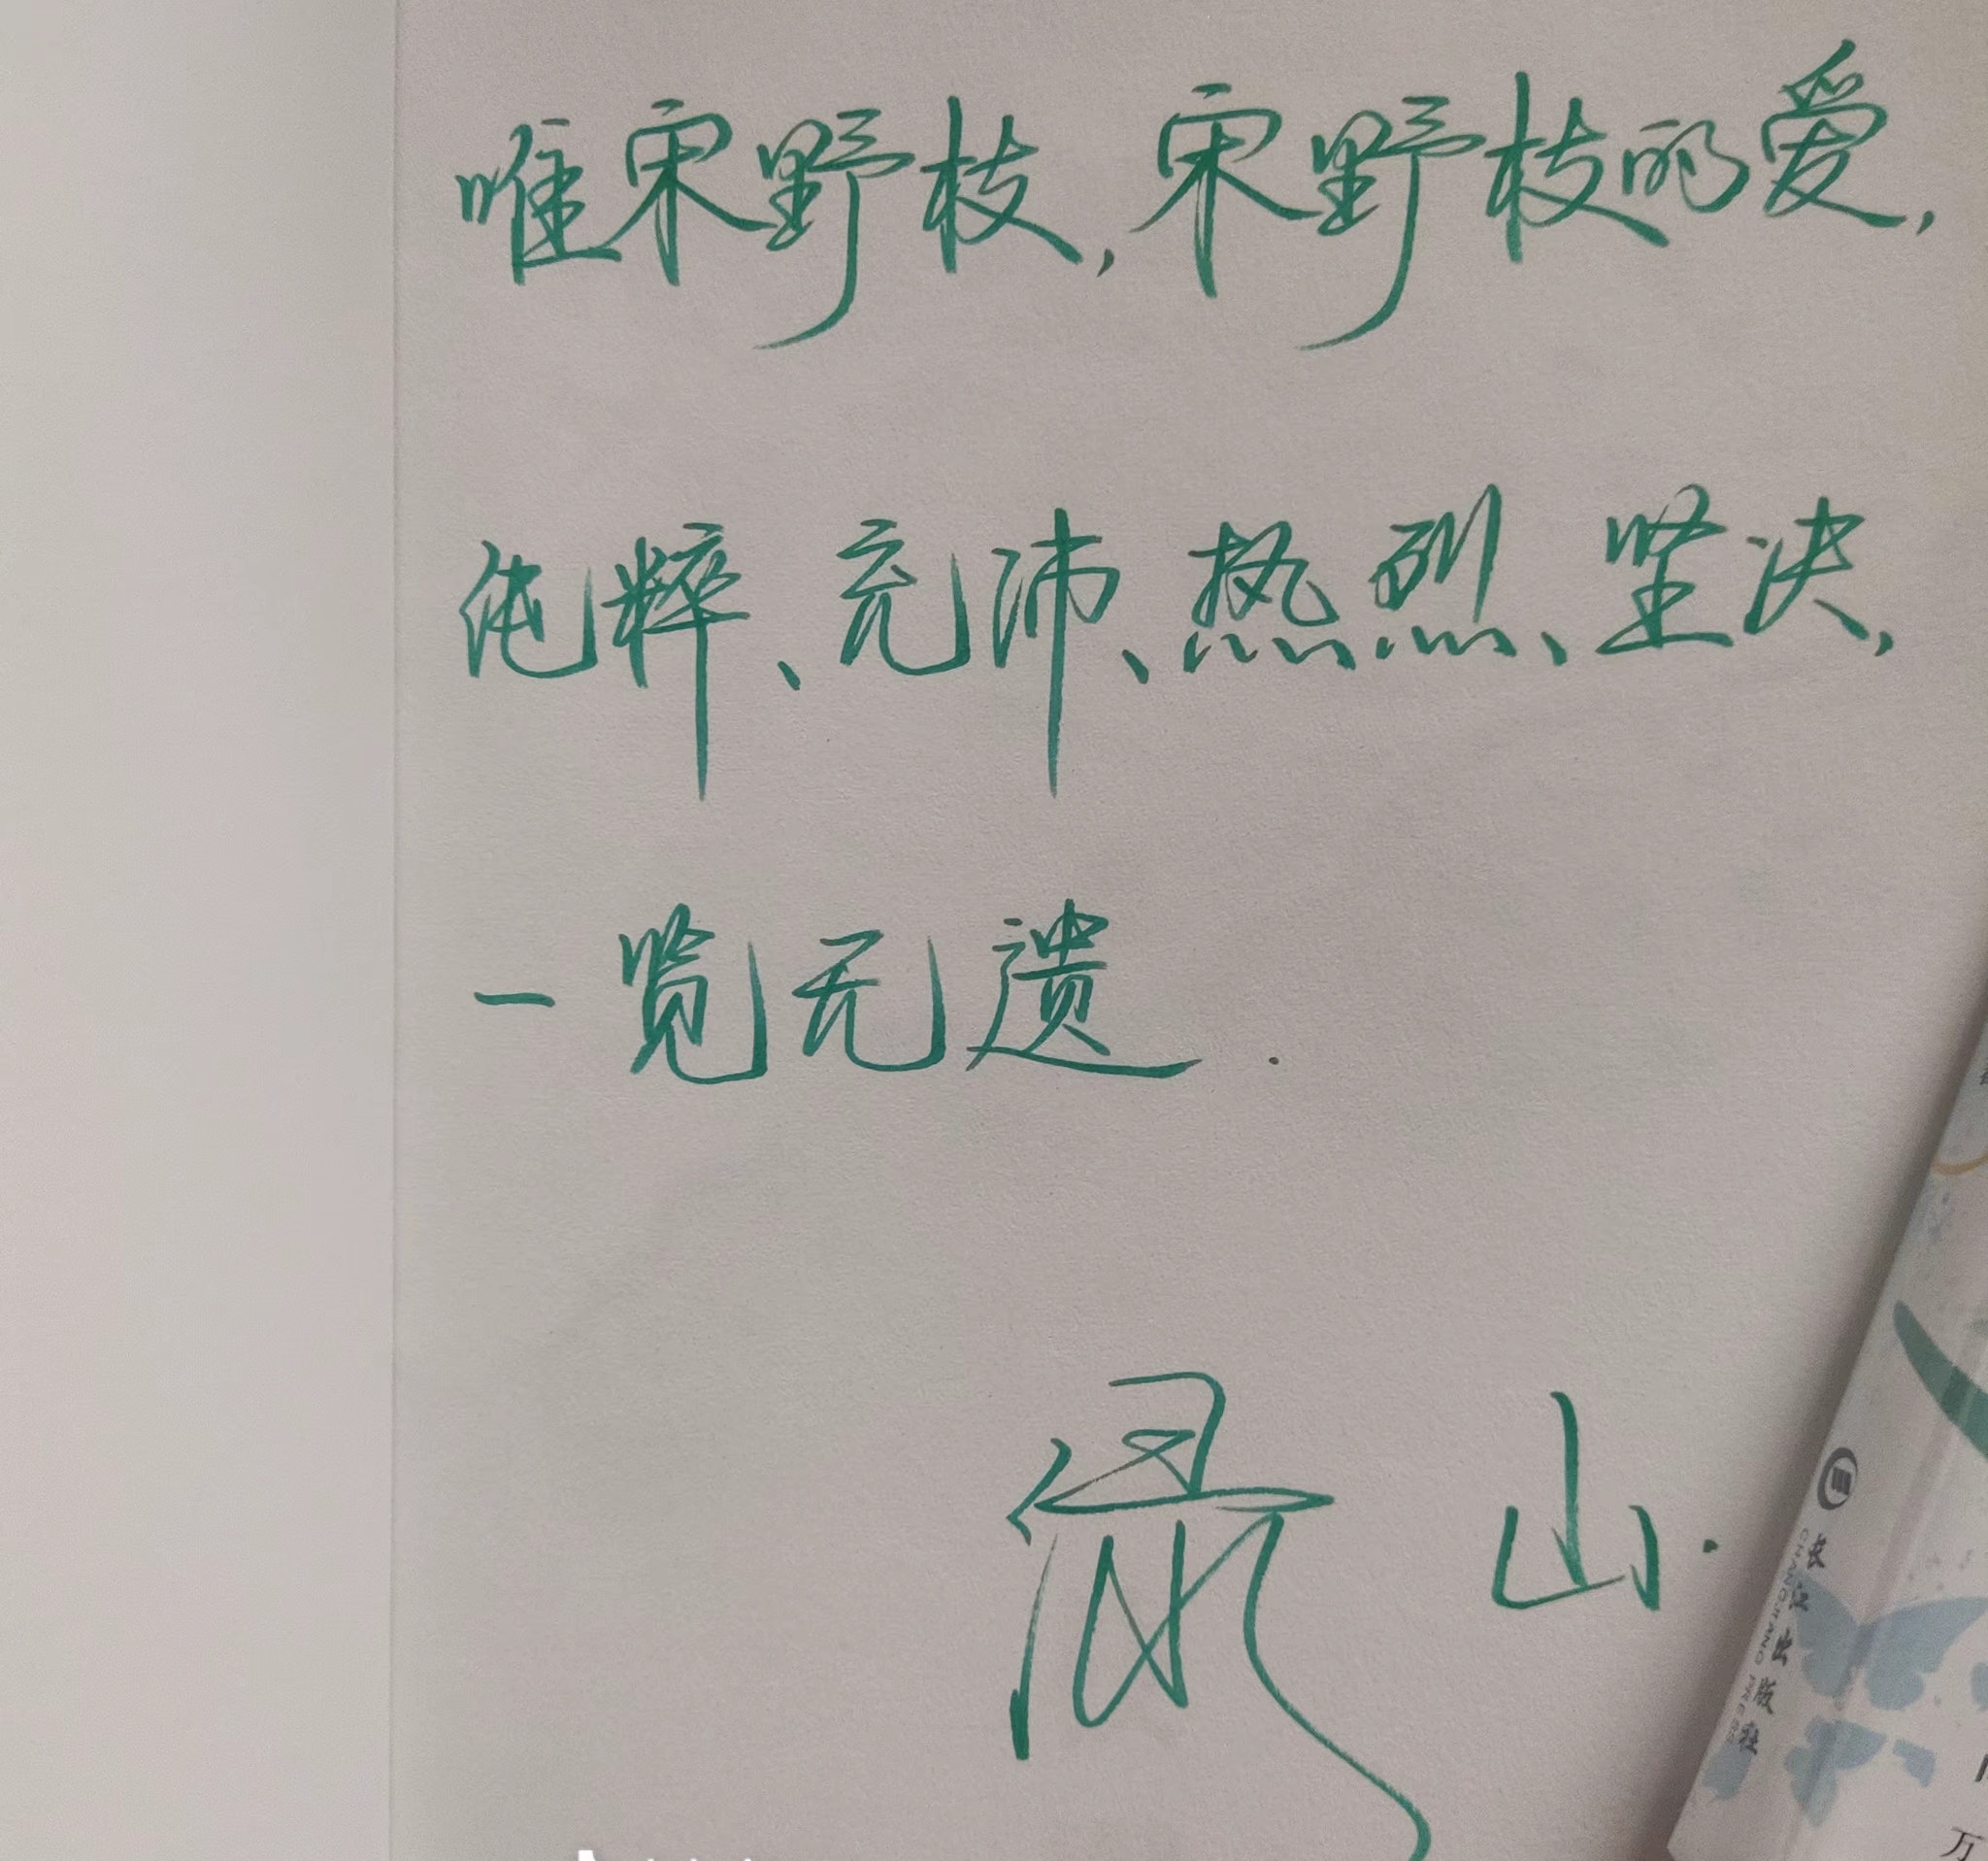 唯宋野枝，宋野枝的爱，
纯粹、充沛、热烈、坚决，
一览无遗.
山.
长江出版社
CHANGJIANG PRESS
万